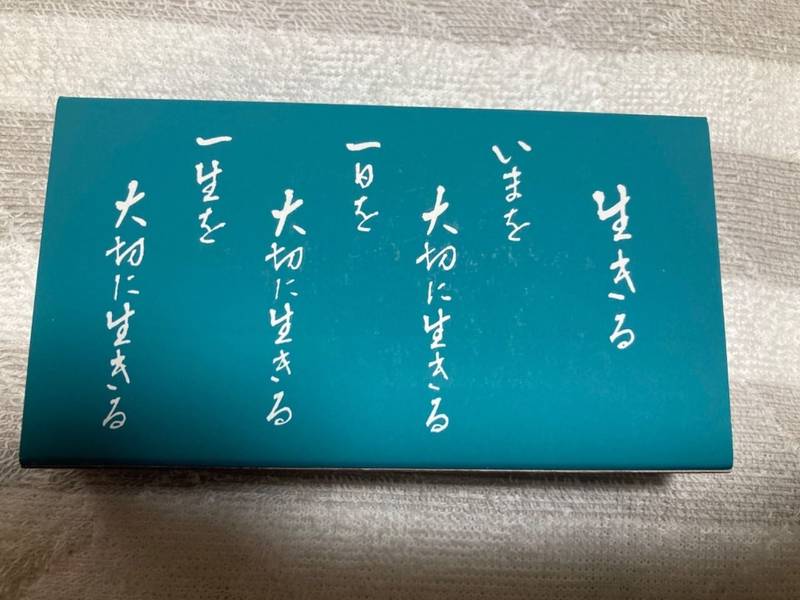 生きる
いまを
大切に生きる
一日を
大切に生きる
一生を
大切に生きる